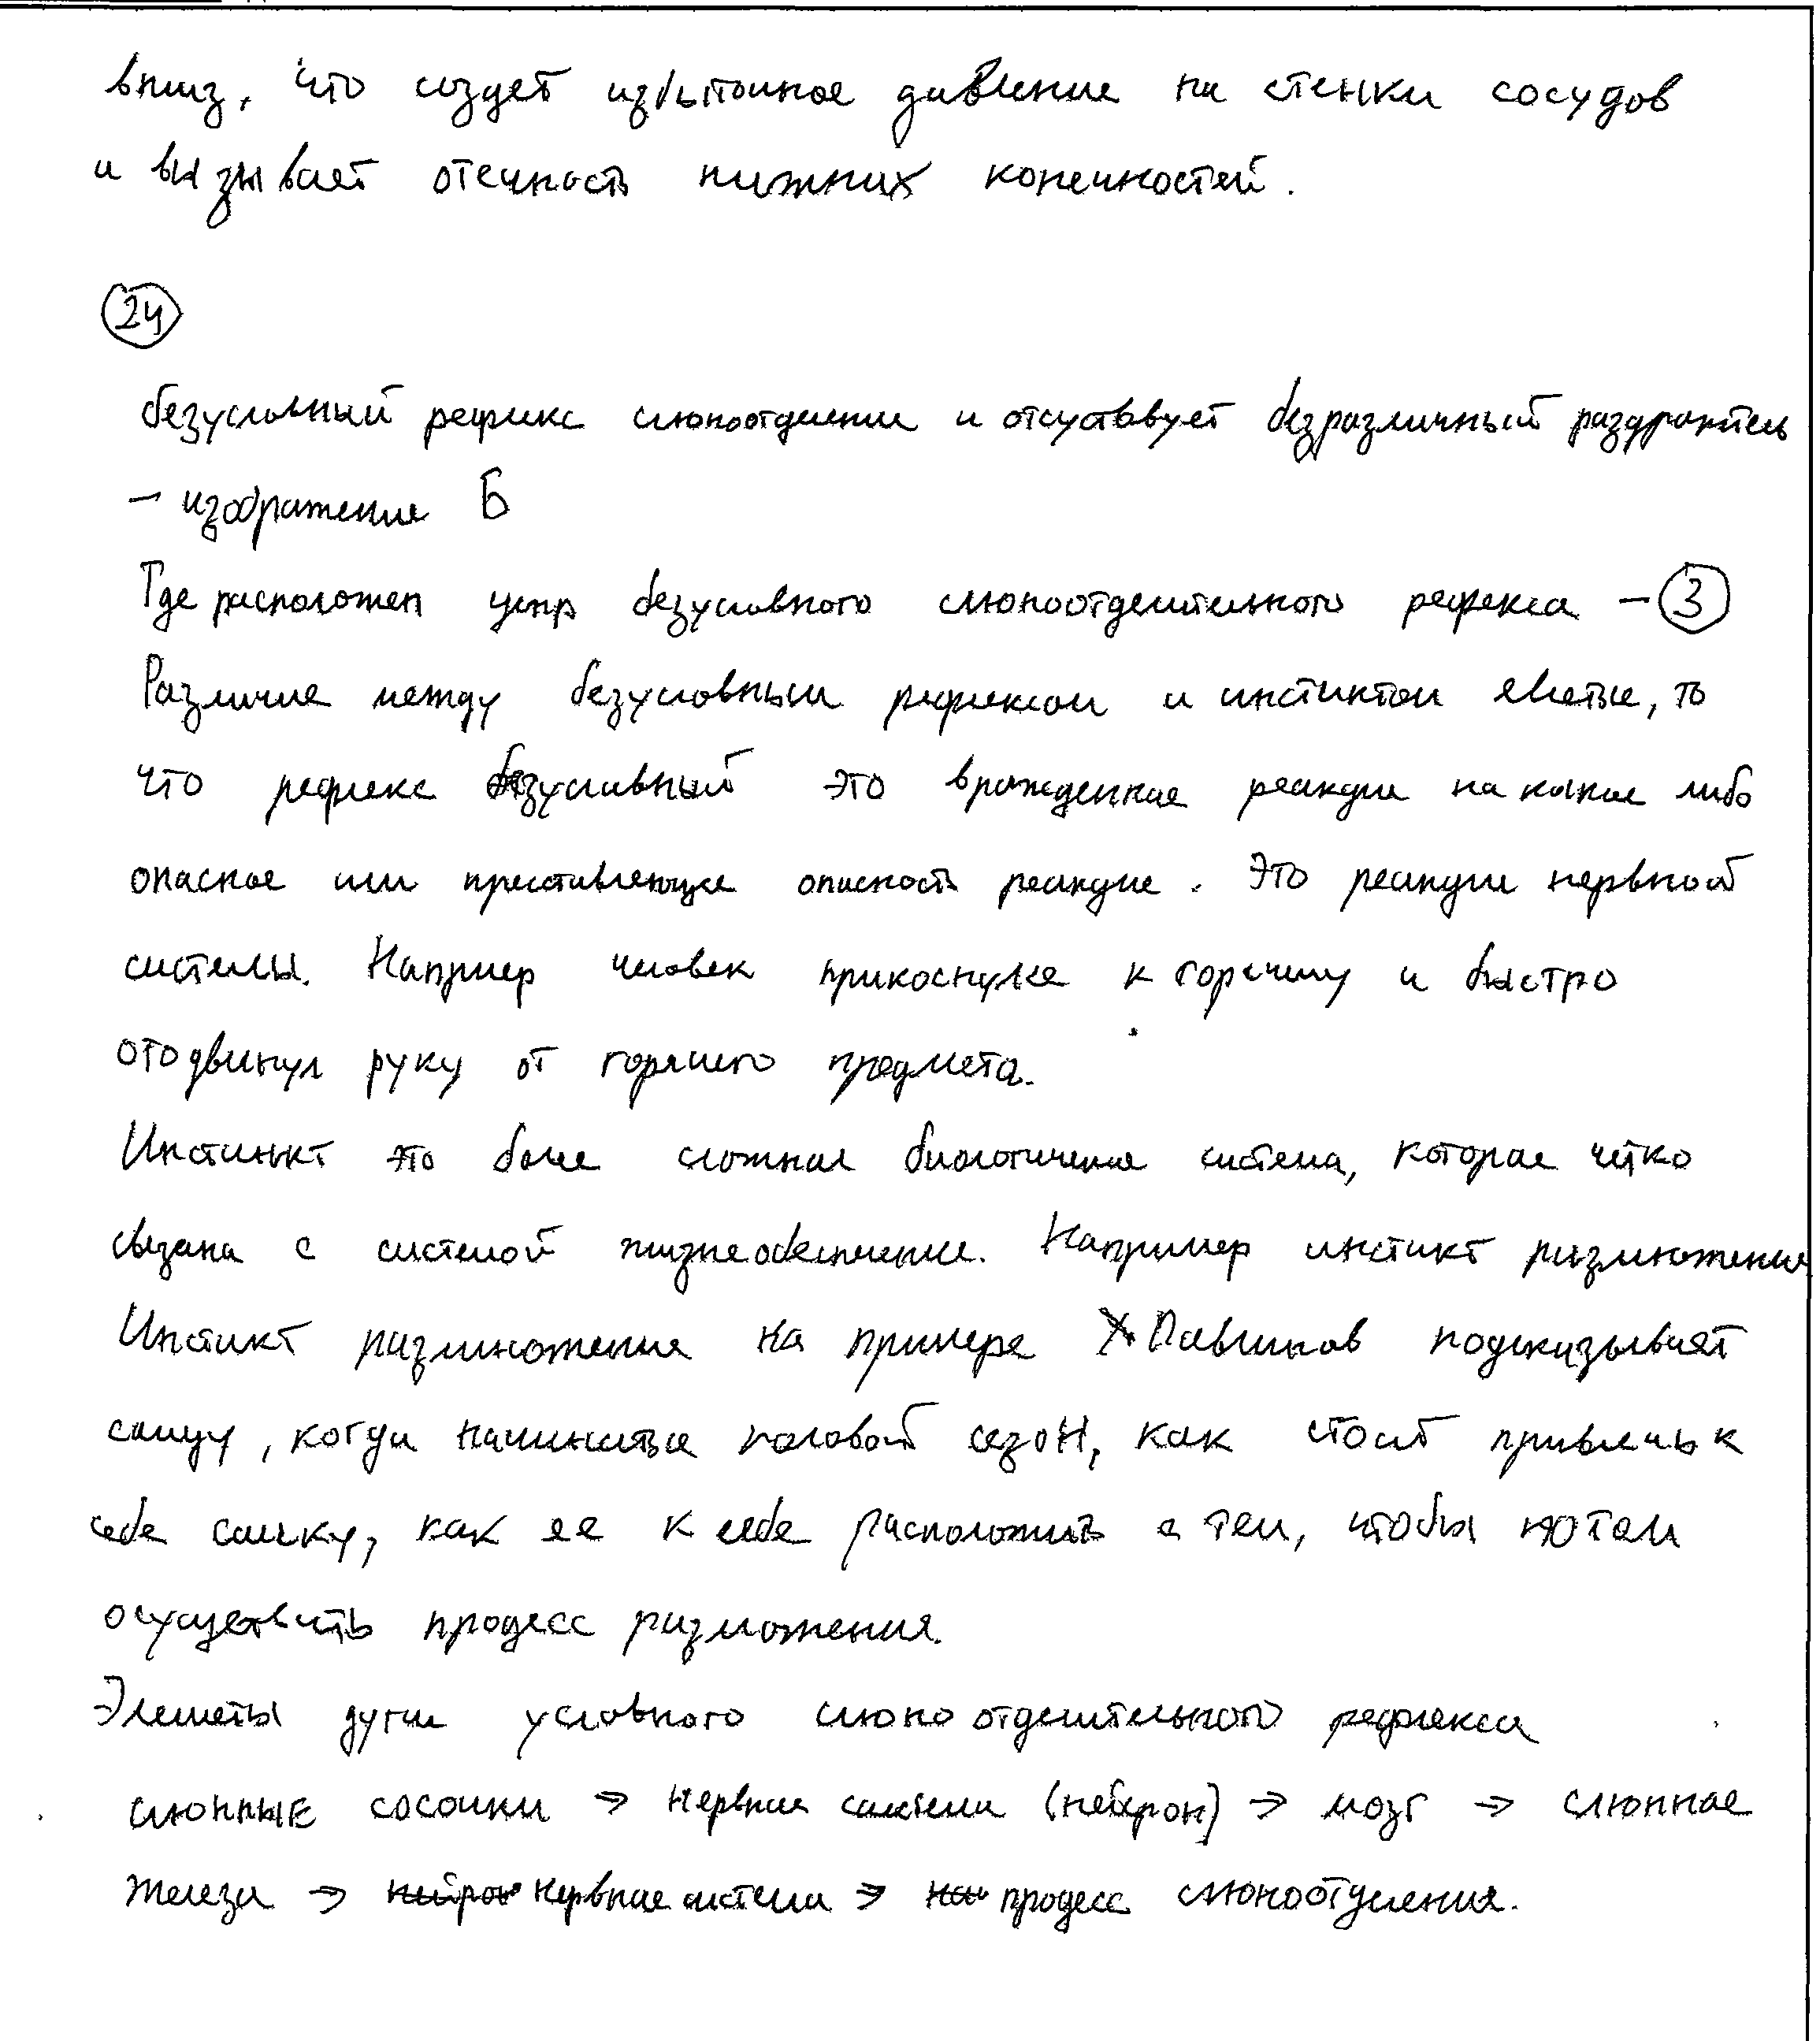 вниз, что создет избыточное давление на стенки сосудов
и вызывает отечность нижних конечностей.
24
безусловный рефлекс слюноотделения и отсутствует безразличный раздражитель
- изображение Б
Где расположен центр безусловного слюноотделительного рефлекса - 3
Различие между безусловным рефлексом и инстиктом является, то
что рефлекс безусловный это врожденная реакция на какое либо
опасное или преставляющее опасность реакцие. Это реакции нервной
системы. Например человек прикоснулся к горячему и быстро
отодвинул руку от горячего предмета.
Инстинкт это более сложная биологическая система, которая чётко
связана с системой жизнеобеспечение. Например инстикт размножения
Инстикт размножения на примере Павлинов подсказывает
самцу, когда начинаться половой сезон, как стоит привлечь к
себе самку, как ее к себе расположить с тем, чтобы потом
осуществить процесс разможения.
Элеметы дуги условного слюноотделительного рефлекса
слюнные сосочки → Нервная система (нейрон) → мозг → слюнная
железа → нейрон Нервная система → процесс слюноотделения.